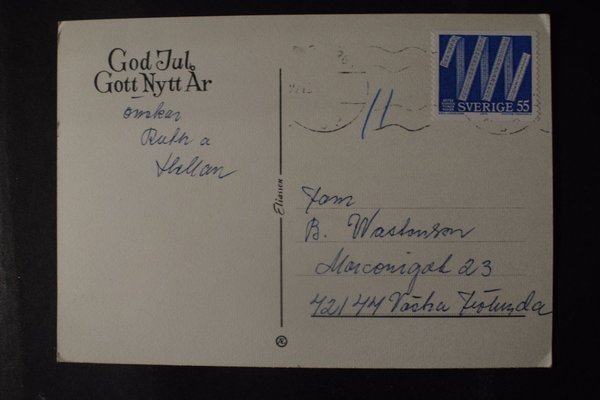 God Jul
Gott Nytt År
önskar
Ruth o
SVERIGE 55
Eliasson
Fam
B. Wastenson
Marconigat 23
421 44 Västra Frölunda